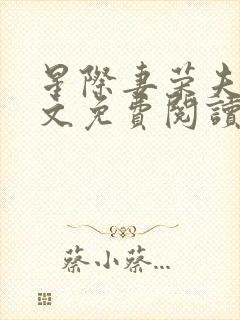 星際妻榮夫
文免費閱讀
蔡小蔡...